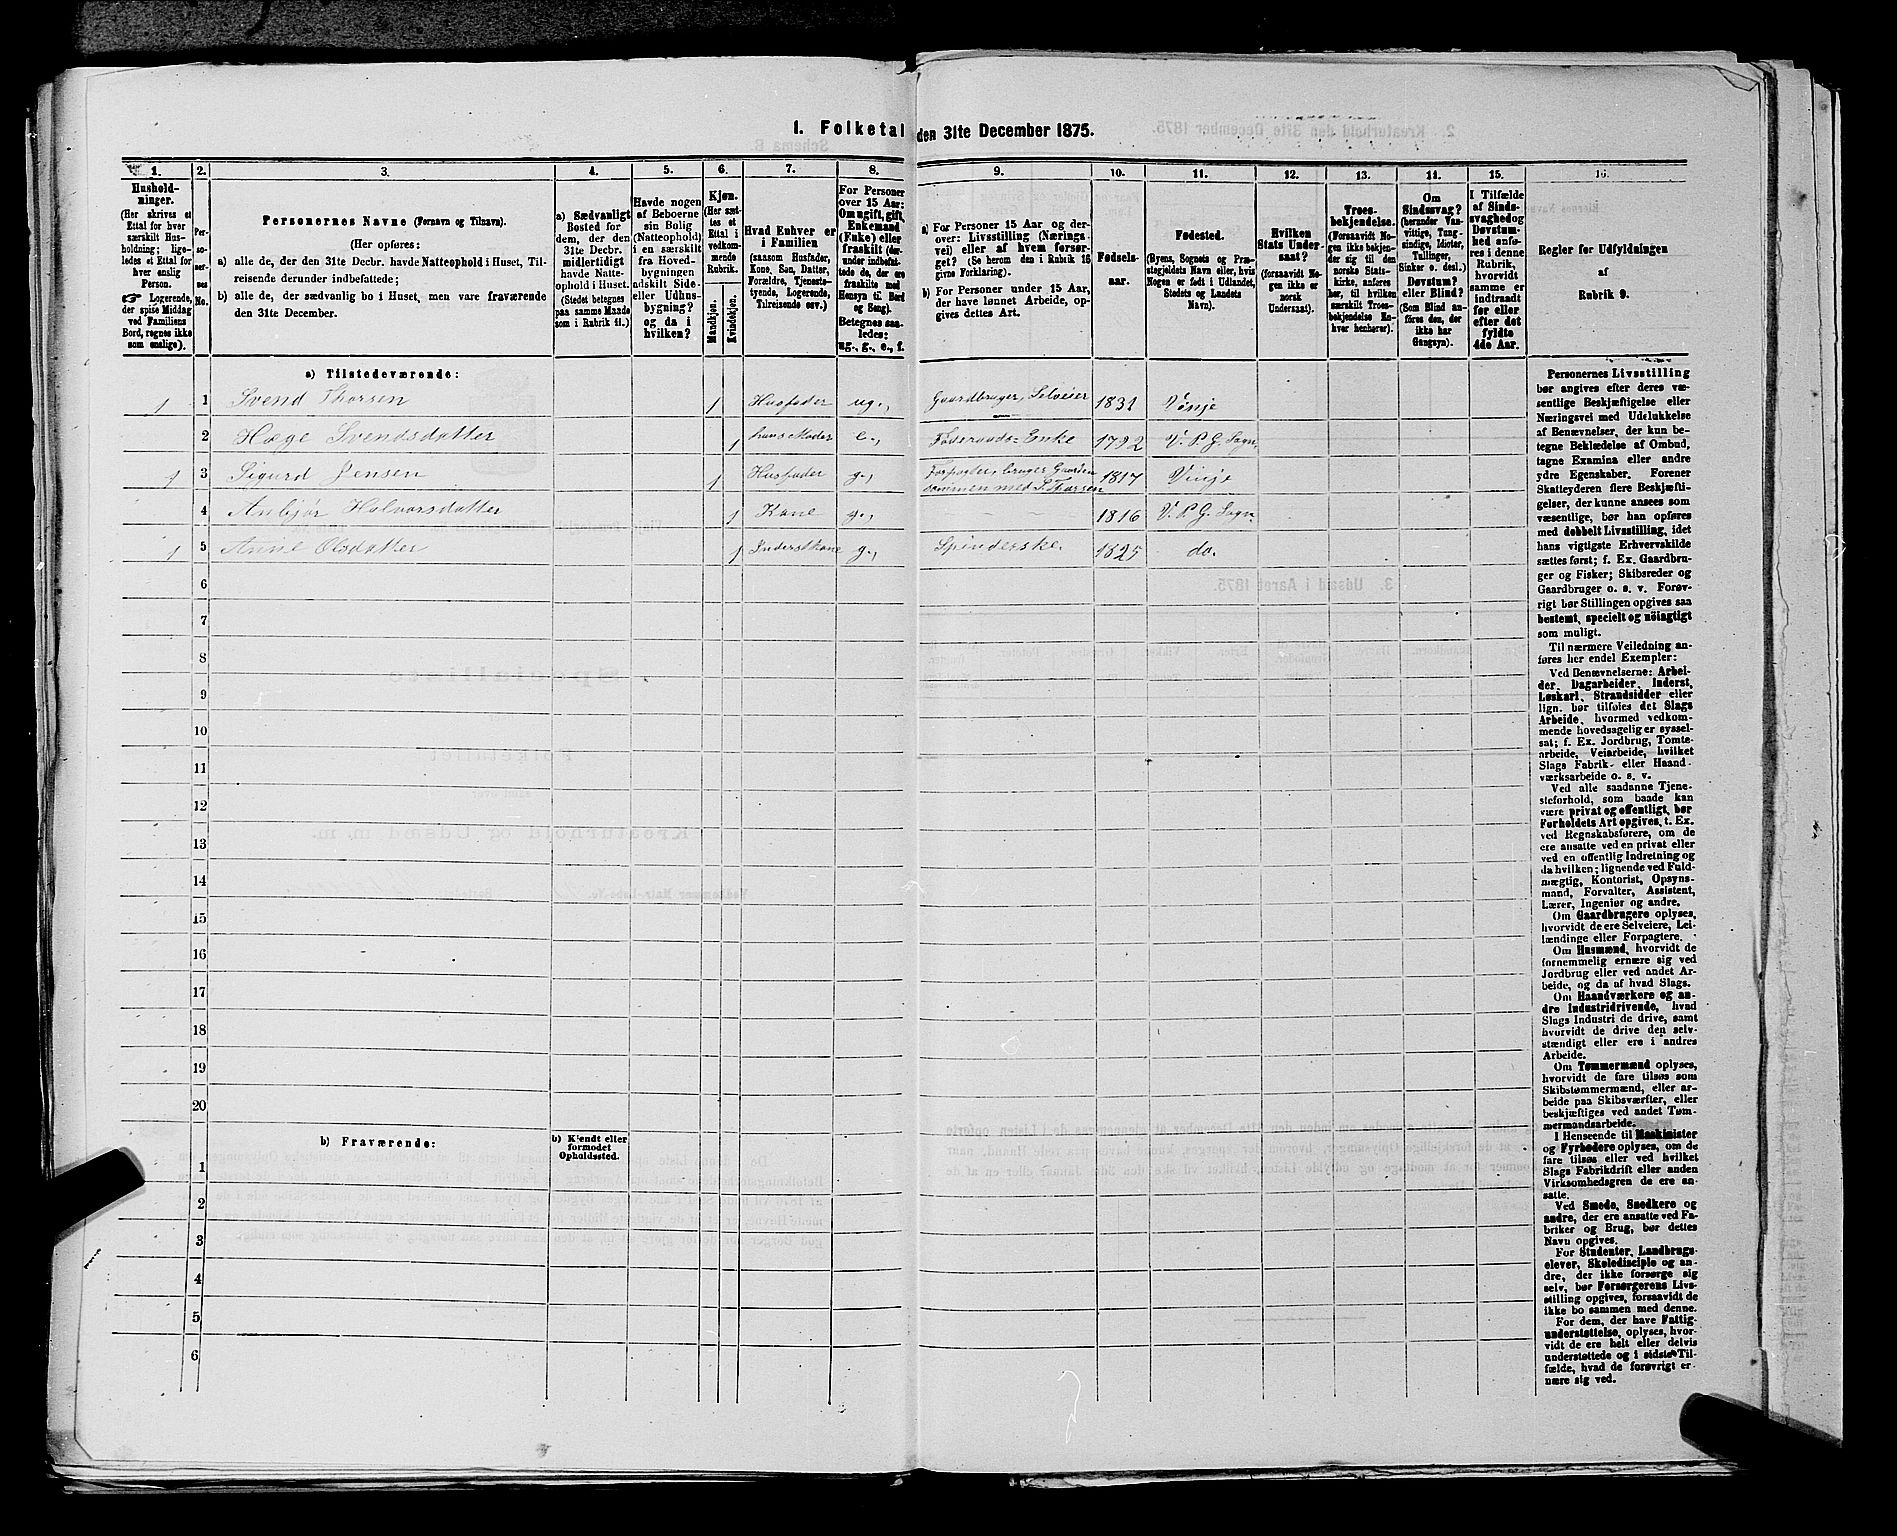 1. Folketal den 31te December 1875.
1. 2. 3. 4. 5. 6. 7. 8. 9. 10. 11. 12. 13. 14. 15. 16.
Hushold-
ninger.
(Her skrives et
Ettal for hver
særskilt Hus-
holdning; lige-
ledes et Ettal for
hver enslig
Person.
☞ Logerende,
der spise Middag
ved Familiens
Bord, regnes ikke
som enslige).
Per-
soner-
nes
No.
Personernes Navne (Fornavn og Tilnavn).
(Her opføres:
a) alle de, der den 31te Decbr. havde Natteophold i Huset, Til-
reisende derunder indbefattede;
b) alle de, der sædvanlig bo i Huset, men vare fraværende
den 31te December.
a) Sædvanligt
Bosted for
dem, der den
31te Decbr.
midlertidigt
havde Natte-
ophold i Huset.
(Stedet betegnes
paa samme Maade
som i Rubrik 11.)
Havde nogen
af Beboerne
sin Bolig
(Natteophold)
i en særskilt
fra Hoved-
bygningen
adskilt Side-
eller Udhus-
bygning?
og da i
hvilken?
Kjøn.
(Her sæt-
tes et
Ettal i
vedkom-
mende
Rubrik.
Mandkjøn.
Kvindekjøn.
Hvad Enhver er
i Familien
(saasom Husfader,
Kone, Søn, Datter,
Forældre, Tjenests-
tyende, Logerende,
Tilreisende osv.)
For Personer
over 15 Aar:
Om ugift, gift,
Enkemand
(Enke) eller
fraskilt (der-
under indbefat-
tede de, der ere
fraskilte med
Hensyn til Bord
og Seng).
Betegnes saa-
ledes:
ug., g., e., f.
a) For Personer 15 Aar og der-
over: Livsstilling (Nærings-
vei) eller af hvem forsør-
get? (Se herom den i Rubrik 16
givne Forklaring).
b) For Personer under 15 Aar,
der have lønnet Arbeide, op-
gives dettes Art.
Fødsels-
aar.
Fødested.
(Byens, Sognets og Præ-
stegjeldets Navn eller, hvis
Nogen er født i Udlandet,
Stedets og Landets
Navn).
Hvilken
Stats Under-
saat?
(forsaavidt No-
gen ikke er
norsk
Undersaat).
Troes-
bekjendelse.
(Forsaavidt No-
gen ikke bekjen-
der sig til den
norske Stats-
kirke, anføres
her, til hvilken
særskilt Troes-
bekjendelse En-
hver henhører).
Om
Sindssvag?
(herunder Van-
vittige, Tung-
sindige, Idioter,
Tullinger,
Sinker o. desl.)
Døvstum?
eller Blind?
(Som Blind an-
føres den, der
ikke har
Gangsyn).
I Tilfælde
af Sinds-
svaghed og
Døvstum-
hed anfø-
res i denne
Rubrik,
hvorvidt
samme er
indtraadt
før eller
efter det
fyldte
4de Aar.
Regler for Udfyldningen
af
Rubrik 9.
a) Tilstedeværende:
1 1 Svend Thorsen 1 Husfader ug., Gaardbruger, Selveier 1831 Vinje
2 Hæge Svendsdatter 1 hans Moder e., Føderaads-Enke 1792 V. P. G. Sogn.
1 3 Sigurd Jensen 1 Husfader g., Forpagter, bruger Gaarden
sammen med S. Thorsen 1817 Vinje
4 Anbjør Halvorsdatter 1 Kone g., – – 1816 V. P. G. Sogn.
1 5 Anne Olsdatter 1 Inderstkone g., Spinderske. 1825 do.
6
7
8
9
10
11
12
13
14
15
16
17
18
19
20
b) Fraværende:
b) Kjendt eller
formodet
Opholdssted.
1
2
3
4
5
6
Personernes Livsstilling
bør angives efter deres væ-
sentlige Beskjæftigelse eller
Næringsvei med Udelukkelse
af Benævnelser, der kun be-
tegne Beklædelse af Ombud,
tagne Examina eller andre
ydre Egenskaber. Forener
Skatteyderen flere Beskjæfti-
gelser, der kunne ansees som
væsentlige, bør han opføres
med dobbelt Livsstilling, idet
hans vigtigste Erhvervskilde
sættes først; f. Ex. Gaardbru-
ger og Fisker; Skibsreder og
Gaardbruger o. s. v. Forøv-
rigt bør Stillingen opgives saa
bestemt, specielt og nöiagtigt
som muligt.
Til nærmere Veiledning an-
føres her endel Exempler:
Ved Benævnelserne: Arbei-
der, Dagarbeider, Inderst,
Løskarl, Strandsidder eller
lign. bør tilføies det Slags
Arbeide, hvormed vedkom-
mende hovedsagelig er syssel-
sat; f. Ex. Jordbrug, Tomte-
arbeide, Veiarbeide, hvilket
Slags Fabrik- eller Haand-
værksarbeide o. s. v.
Ved alle saadanne Tjene-
steforhold, som baade kan
være privat og offentligt, bør
Forholdets Art opgives, t. Ex.
ved Regnskabsførere, om de
ere ansatte ved en privat eller
ved en offentlig Indretning og
da hvilken; lignende ved Fuld-
mægtig, Kontorist, Opsyns-
mand, Forvalter, Assistent,
Lærer, Ingeniør og andre.
Om Gaardbrugere oplyses,
hvorvidt de ere Selveiere, Lei-
lændinge eller Forpagtere.
Om Husmænd, hvorvidt de
fornemmelig ernære sig ved
Jordbrug eller ved andet Ar-
beide, og da af hvad Slags.
Om Haandværkere og an-
dre Industridrivende, hvad
Slags Industri de drive, samt
hvorvidt de drive den selv-
stændigt eller ere i andres
Arbeide.
Om Tømmermænd oplyses,
hvorvidt de fare tilsøs som
Skibstømmermænd, eller ar-
beide paa Skibsværfter, eller
beskjæftiges ved andet Tøm-
mermandsarbeide.
I Henseende til Maskinister
og Fyrbødere oplyses, om de
fare tilsøs eller ved hvilket
Slags Fabrikdrift eller anden
Virksomhedsgren de ere an-
satte.
Ved Smede, Snedkere og
andre, der ere ansatte ved Fa-
briker og Brug, bør dettes
Navn opgives.
For Studenter, Landbrugs-
elever, Skoledisciple og an-
dre, der ikke forsørge sig
selv, bør Forsørgerens Livs-
stilling opgives, forsaavidt de
ikke bo sammen med denne.
For dem, der have Fattig-
understøttelse, oplyses, hvor-
vidt de ere helt eller delvis
understøttede og i sidste Til-
fælde, hvad de forøvrigt er-
nære sig ved.